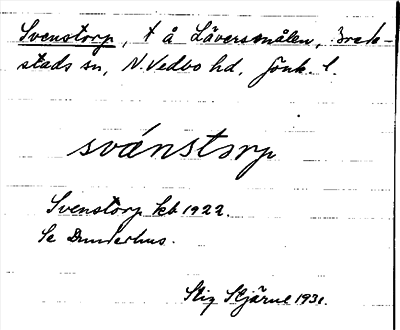 Svenstorp, t å Läversmålen, Breds-
stads sn, N. Vedbo hd, Jönk. l.
svánstorp
Svenstorp kb 1922.
Se Dunderhus.
Stig Stjärne 1931.